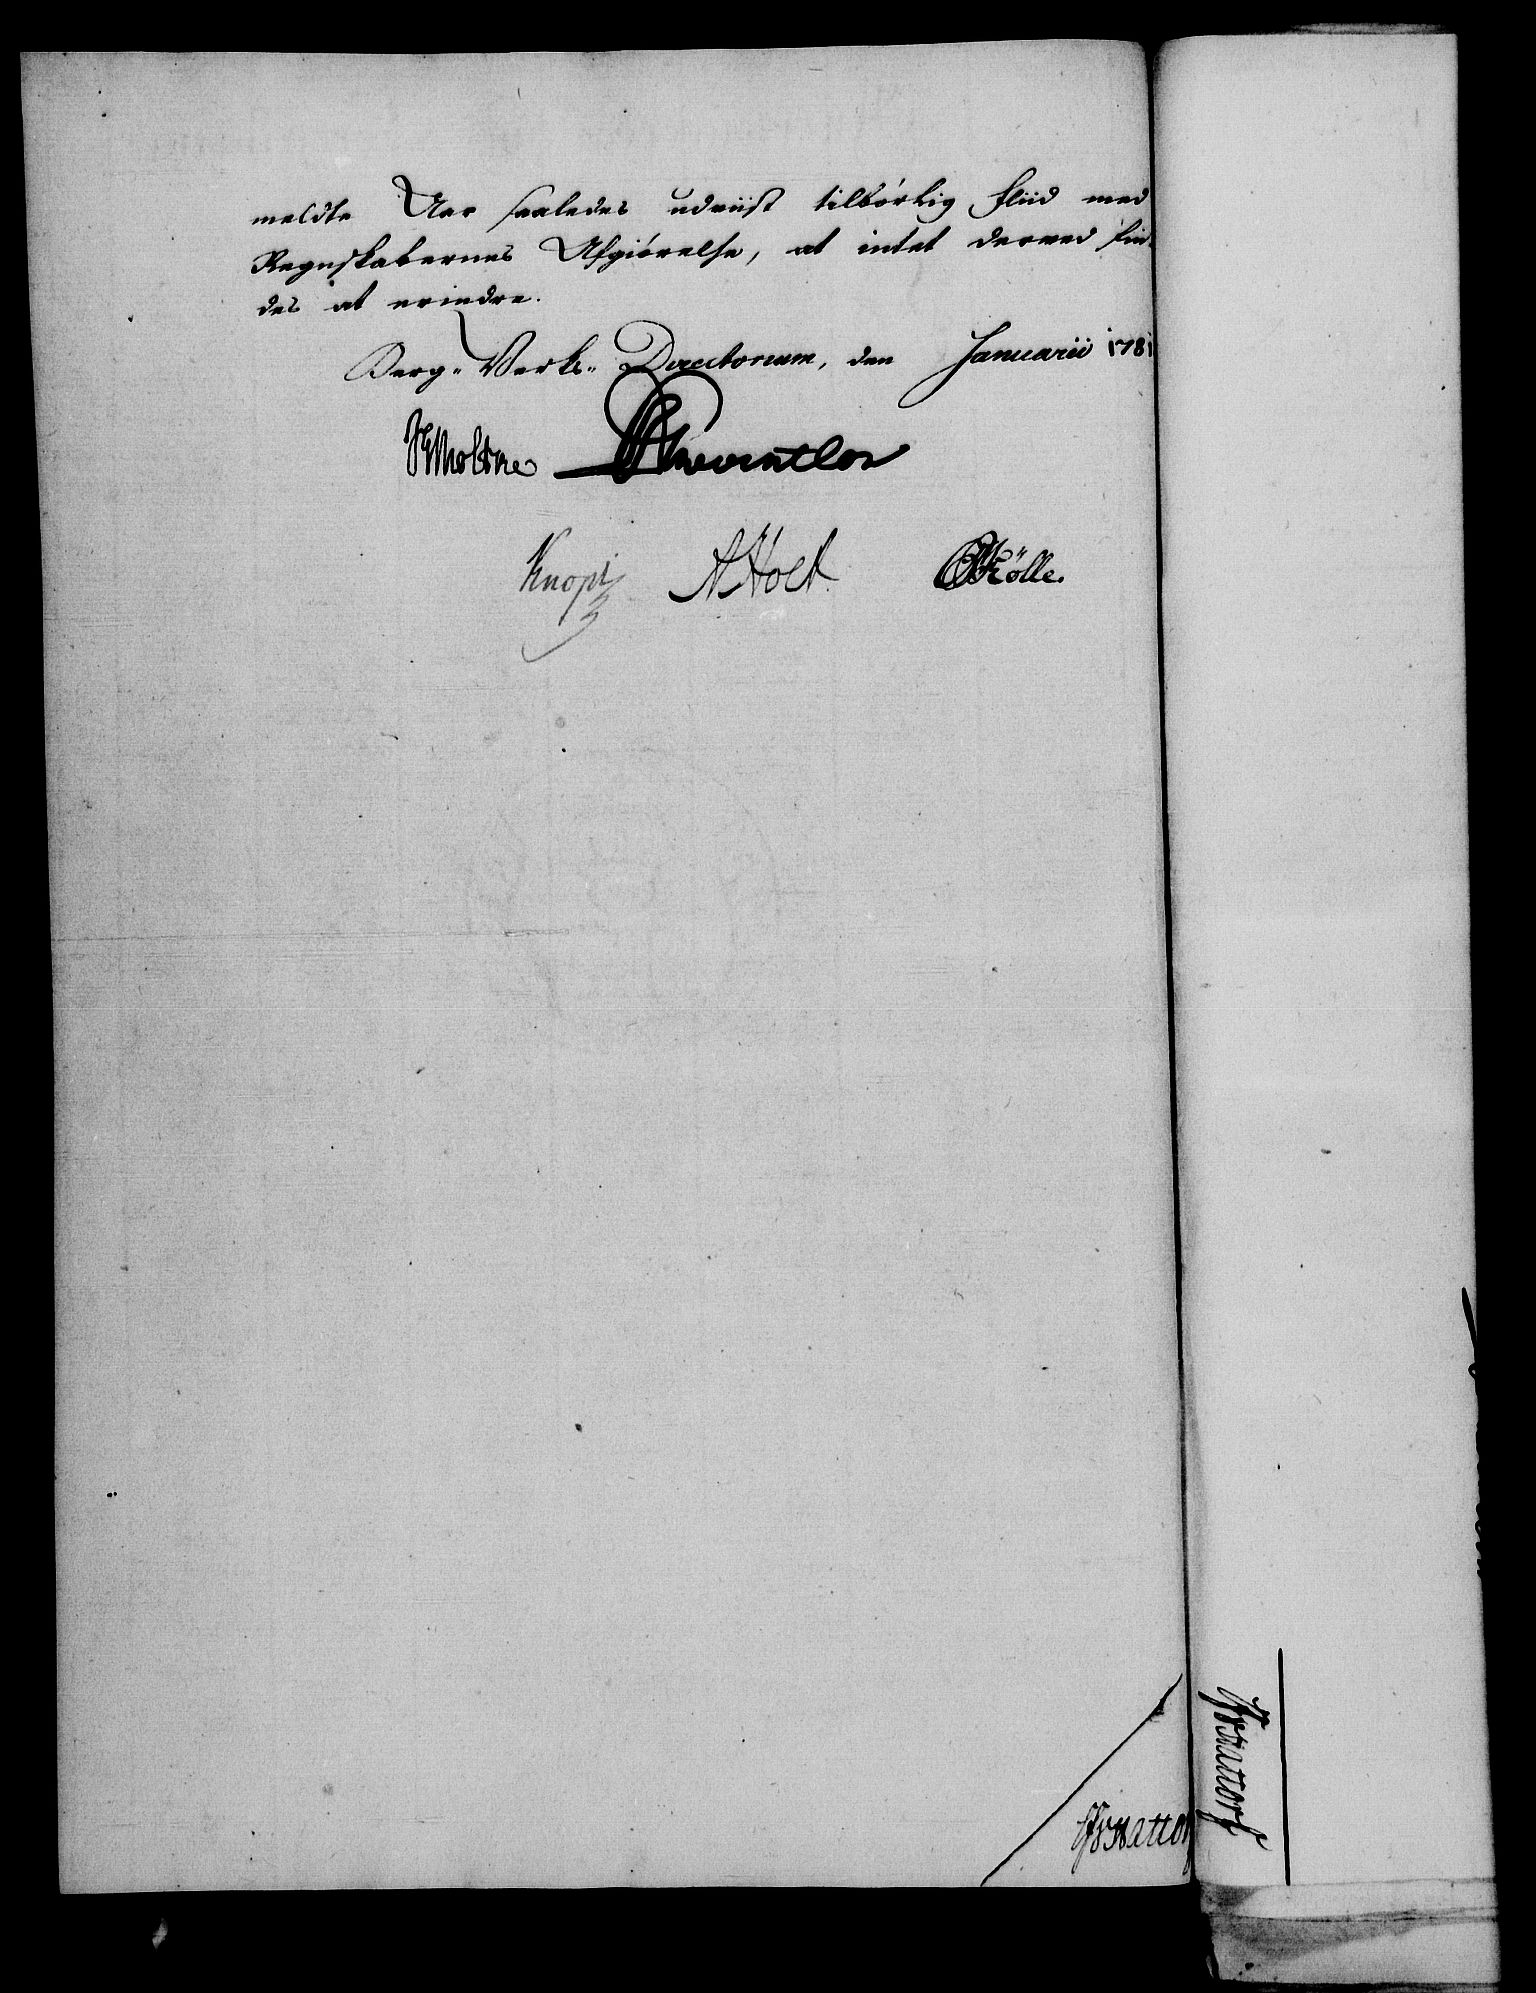 meldte Aar saaledes udviist tilbørlig Fliid med
Regnskabernes Afgiørelse, at intet derved fin-
des at erindre.
Berg- Verks- Directorium, den Januarii 1781
JGMoltke Reventlow
Knopf AHolt Kølle.